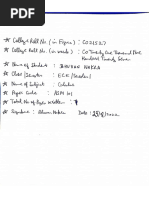 * College Roll No. (in Figure) : CO21527
* College Roll No. (in words) : Co Twenty One Thousand Five
Hundred Twenty Seven
* Name of Student : BHUVAN
* Class/Semester : ECE/
* Name of Subject : Calculus
* Paper Code : ASM 101
* Total No of Pages written :
* Signature : Bhuvan Date :